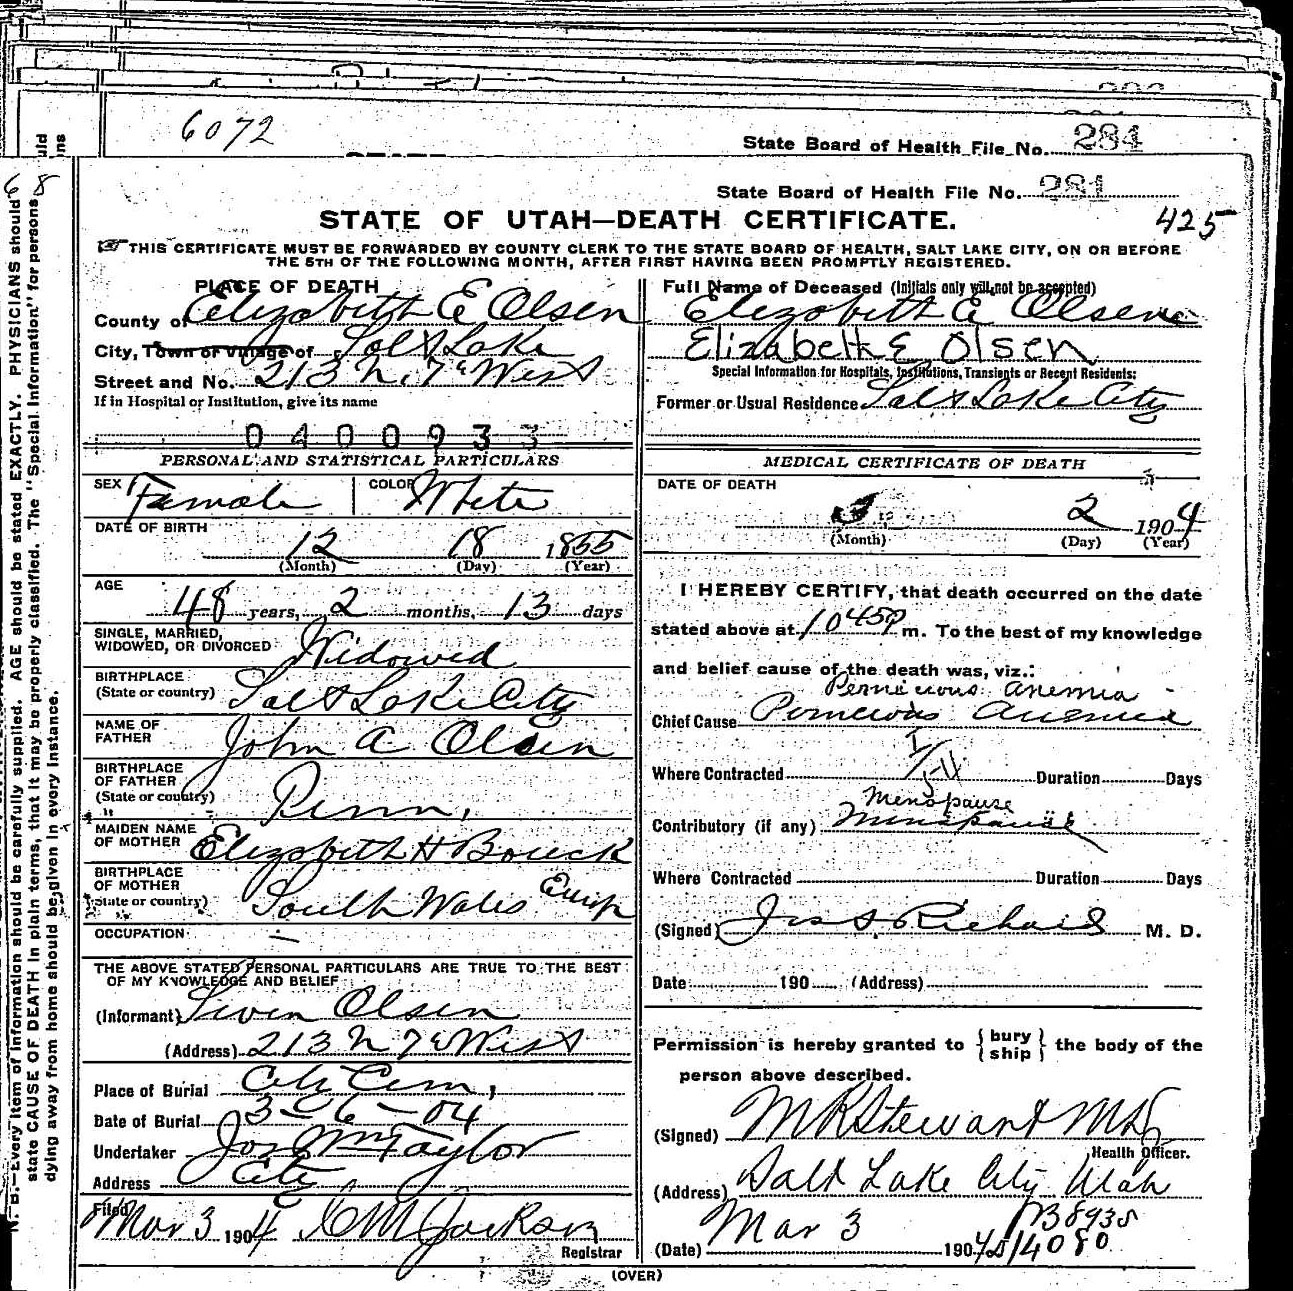 6072
State Board of Health File No. 284
State Board of Health File No. 281
STATE OF UTAH—DEATH CERTIFICATE.
425
THIS CERTIFICATE MUST BE FORWARDED BY COUNTY CLERK TO THE STATE BOARD OF HEALTH, SALT LAKE CITY, ON OR BEFORE
THE 5TH OF THE FOLLOWING MONTH, AFTER FIRST HAVING BEEN PROMPTLY REGISTERED.
PLACE OF DEATH
County of Elizabeth E Olsen
City, Town or Village of Salt Lake
Street and No. 213 N. 7th West
If in Hospital or Institution, give its name
0400933
PERSONAL AND STATISTICAL PARTICULARS
SEX Female COLOR White
DATE OF BIRTH
12 18 1855
(Month) (Day) (Year)
AGE
48 years, 2 months, 13 days
SINGLE, MARRIED,
WIDOWED, OR DIVORCED Widowed
BIRTHPLACE
(State or country) Salt Lake City
NAME OF
FATHER John A Olsen
BIRTHPLACE
OF FATHER
(State or country) Penn,
MAIDEN NAME
OF MOTHER Elizabeth H
BIRTHPLACE
OF MOTHER
(State or country) South Wales
OCCUPATION —
THE ABOVE STATED PERSONAL PARTICULARS ARE TRUE TO THE BEST
OF MY KNOWLEDGE AND BELIEF
(Informant) Olsen
(Address) 213 N 7th West
Place of Burial City Cem,
Date of Burial 3-6-04
Undertaker Jos Wm Taylor
Address City
Filed Mar 3 1904 Jackson
Registrar
Full Name of Deceased (Initials only will not be accepted)
Elizabeth E Olsen
Elizabeth E Olsen
Special Information for Hospitals, Institutions, Transients or Recent Residents:
Former or Usual Residence Salt Lake City
MEDICAL CERTIFICATE OF DEATH
DATE OF DEATH
3 2 1904
(Month) (Day) (Year)
I HEREBY CERTIFY, that death occurred on the date
stated above at 10 45 P m. To the best of my knowledge
and belief cause of the death was, viz.:
Pernicious Anemia
Chief Cause Pernicious Anemia
Where Contracted Duration Days
Menopause
Contributory (if any) Menopause
Where Contracted Duration Days
(Signed) M. D.
Date 190 (Address)
Permission is hereby granted to { bury
ship } the body of the
person above described.
(Signed) M R Stewart MD
Health Officer.
(Address) Salt Lake City Utah
(Date) Mar 3 1904
14080
(OVER)
68
N. B.—Every item of information should be carefully supplied. AGE should be stated EXACTLY. PHYSICIANS should
state CAUSE OF DEATH in plain terms, that it may be properly classified. The "Special Information" for persons
dying away from home should be given in every instance.